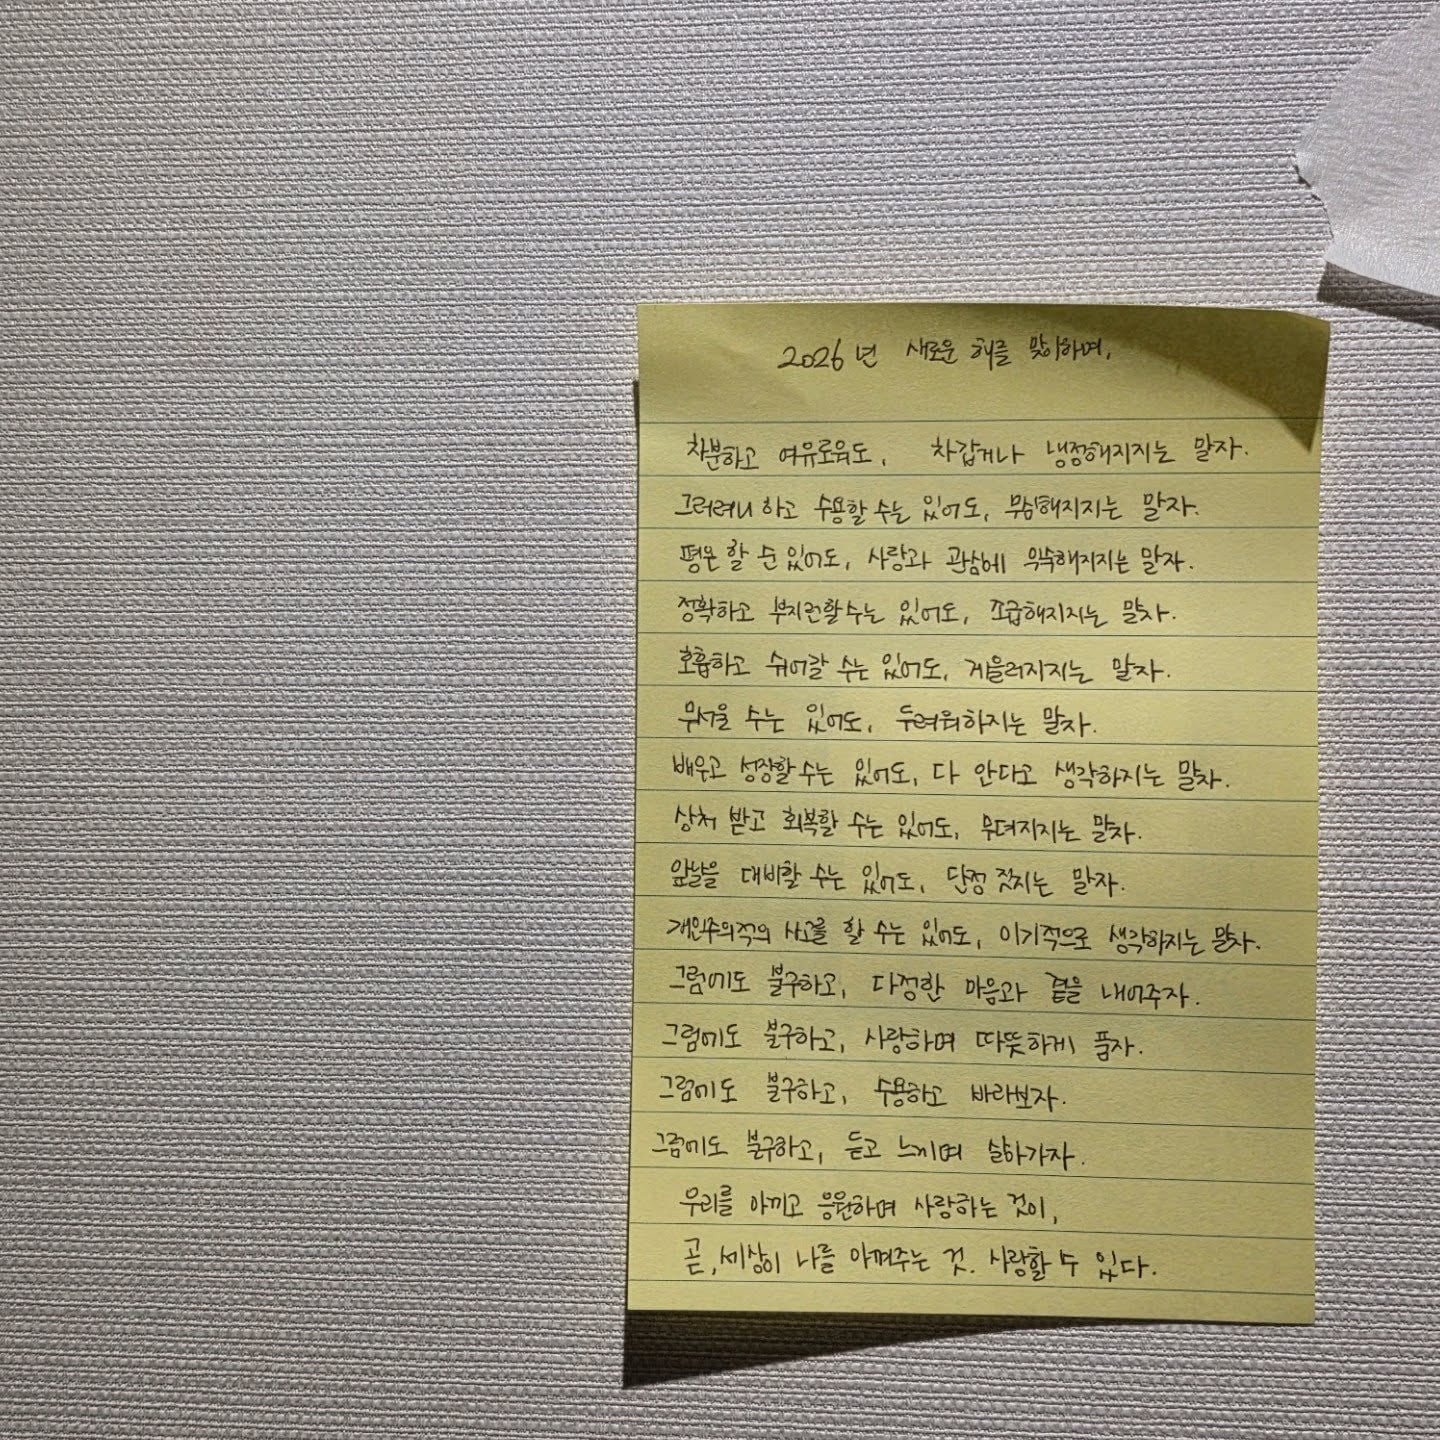 2026년 새로운 해를 맞이하며,
차분하고 여유로워도, 차갑거나 냉정해지지는 말자.
그러려니 하고 수용할 수는 있어도, 무심해지지는 말자.
평온 할 순 있어도, 사랑과 관심에 익숙해지지는 말자.
정확하고 부지런할 수는 있어도, 조급해지지는 말자.
호흡하고 쉬어갈 수는 있어도, 게을러지지는 말자.
무서울 수는 있어도, 두려워하지는 말자.
배우고 성장할 수는 있어도, 다 안다고 생각하지는 말자.
상처 받고 회복할 수는 있어도, 무뎌지지는 말자.
앞날을 대비할 수는 있어도, 단정 짓지는 말자.
개인주의적의 사고를 할 수는 있어도, 이기적으로 생각하지는 말자.
그럼에도 불구하고, 다정한 마음과 곁을 내어주자.
그럼에도 불구하고, 사랑하며 따뜻하게 품자.
그럼에도 불구하고, 수용하고 바라보자.
그럼에도 불구하고, 듣고 느끼며 살아가자.
우리를 아끼고 응원하며 사랑하는 것이,
곧, 세상이 나를 아껴주는 것. 사랑할 수 있다.